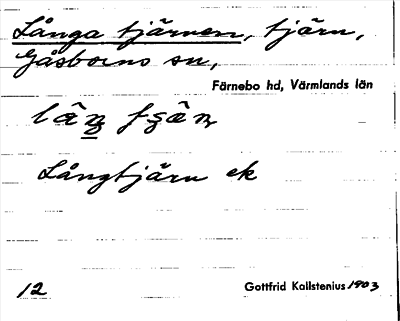 Långa tjärnen, tjärn,
Gåsborns sn,
Färnebo hd, Värmlands län
Långtjärn ek
12 Gottfrid Kallstenius 1903